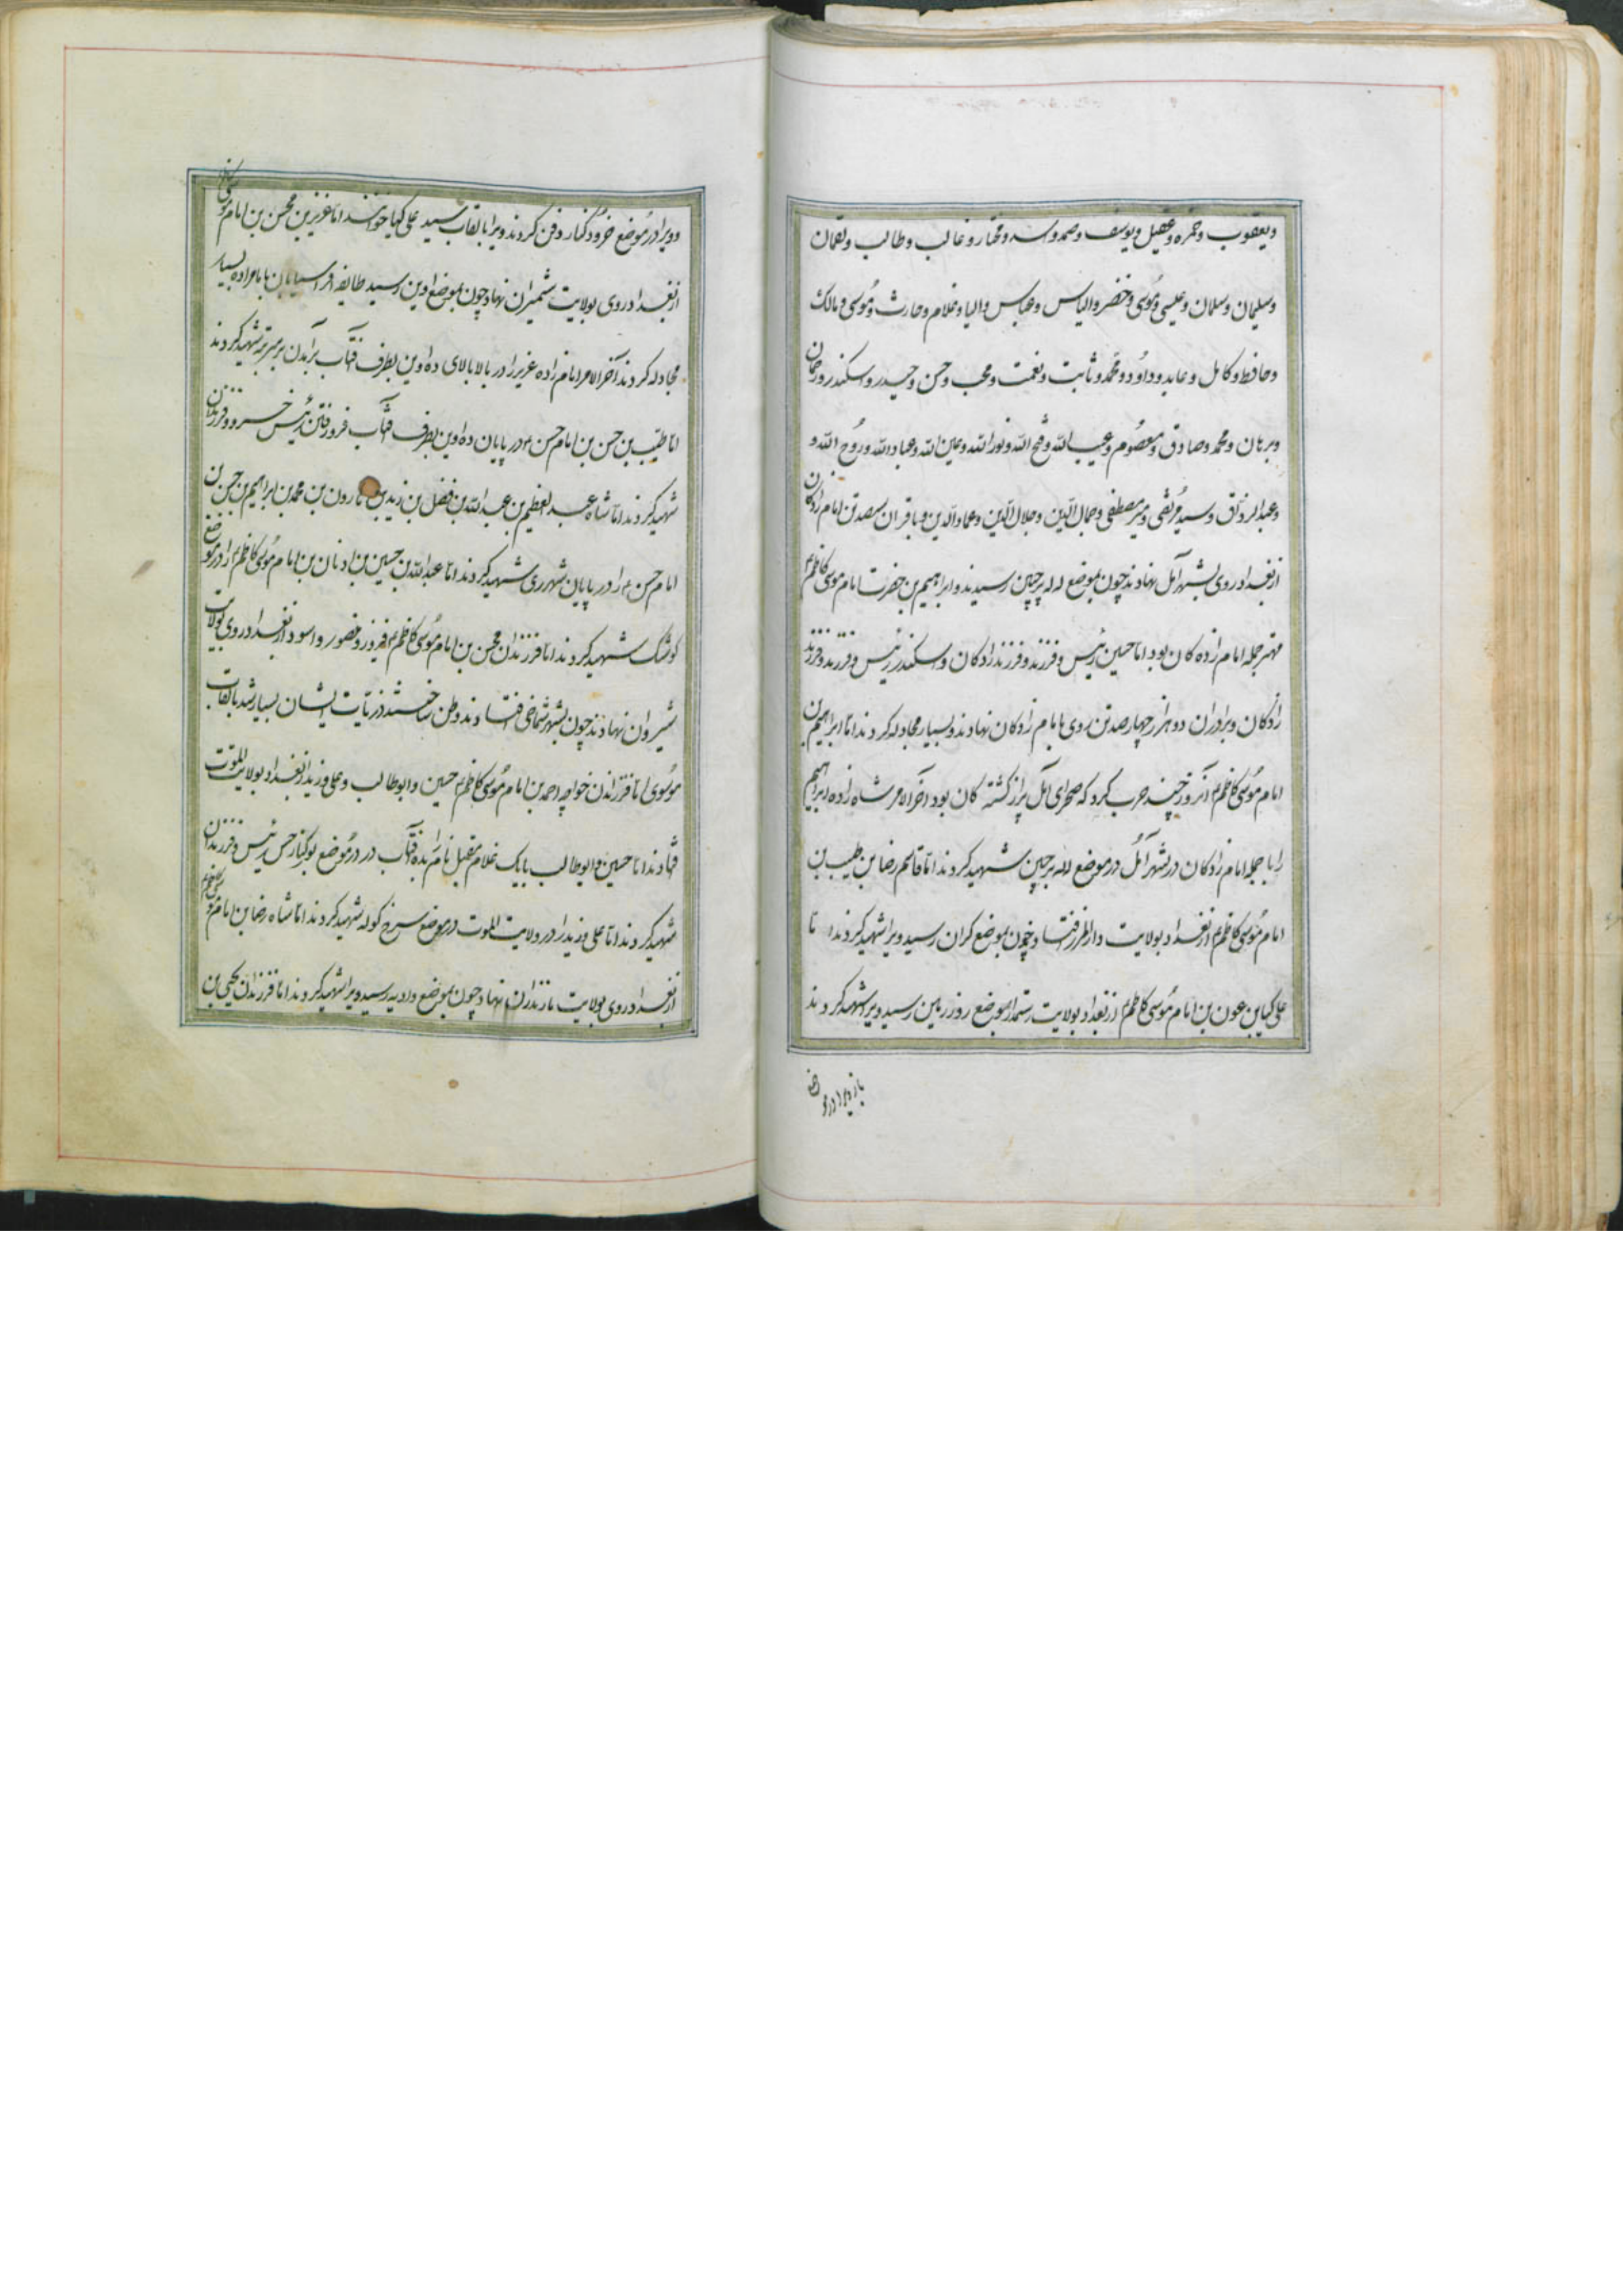 ویعقوب وحمزه وعقیل ویوسف وصمد واسد ومختار وغالب وطالب ونعمان
وسلیمان وسلمان وعیسی وموسی وخضر والیاس وعباس والیا وغلام وحارث وموسی ومالک
وحافظ وکامل وعابد وداود ومحمد وثابت ونعمت ومحب وحسن وحیدر واسکندر ورحمان
وبرهان ومحمد وصادق ومعصوم وعبدالله وفتح الله ونورالله وعین الله وعبادالله وروح الله و
وعبدالرزاق وسید مرتضی ومیر مصطفی وجمال الدین وجلال الدین وعمادالدین وباقر ان سصد تن امام زادکان
از بغداد روی بشهر آمل نهادند چون بموضع لله پرچین رسیدند وابراهیم بن حضرت امام موسی کاظم
مهتر جمله امام زاده کان بود اما حسین رئیس وفرزند وفرزند زادکان واسکندر رئیس وفرزند وفرزند
زادکان وبرادران دو هزار چهارصد تن روی با امام زادکان نهادند وبسیار مجادله کردند اما ابراهیم بن
امام موسی کاظم آنروز چند حرب کرد که صحرای آمل پر از کشته کان بود آخر الامر شاه زاده ابراهیم
را با جمله امام زادکان در شهر آمل در موضع لله پرچین شهید کردند اما قاسم رضا بن طیب بن
امام موسی کاظم از بغداد بولایت دارالمرز افتاد وچون بموضع کران رسید ویرا شهید کردند اما
علی کیا بن عون بن امام موسی کاظم از بغداد بولایت رستمدار بموضع روز زمین رسید ویرا شهید کردند
وویرا در موضع خرود کنار دفن کردند ویرا بالقاب سید علی کیا خوانند اما عزیز بن محسن بن امام موسی کاظم
از بغداد روی بولایت شمیران نهاد چون بموضع اوین رسید طایفه افراسیابان با امام زاده بسیار
مجادله کردند آخر الامر امام زاده عزیز را در بالا بالای ده اوین بطرف آفتاب برآمدن بر سر تپه شهید کردند
اما طیب بن حسن بن امام حسن در پایان ده اوین بطرف آفتاب فرو رفتن رئیس خسرو وفرزندان
شهید کردند اما شاه عبدالعظیم بن عبدالله بن فضل بن زید بن هارون بن محمد بن ابراهیم بن حسن بن
امام حسن را در پایان شهر ری شهید کردند اما عبدالله بن حسین بن بن امام موسی کاظم را در موضع
کوشک شهید کردند اما فرزندان محسن بن امام موسی کاظم فیروز ومنصور واسود از بغداد روی بولایت
شیروان نهادند چون بشهر شماخی افتادند وطن ساختند ذریات ایشان بسیار شد بالقاب
موسوی اما فرزندان خواجه احمد بن امام موسی کاظم حسین وابوطالب وعلی وزید از بغداد بولایت الموت
افتادند اما حسین وابوطالب با یک غلام مقبل نام در موضع رئیس وفرزندان
شهید کردند اما علی وزید را در ولایت الموت در موضع سرخ کوله شهید کردند اما شاه رضا بن امام موسی کاظم
از بغداد روی بولایت مازندران نهاد چون بموضع رسید ویرا شهید کردند اما فرزندان یحیی بن